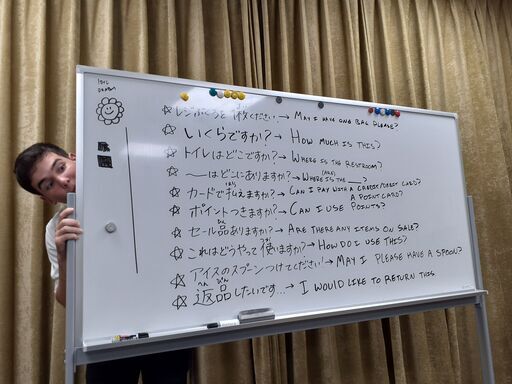 ☆レジぶくろを1枚ください! → MAY I HAVE ONE BAG PLEASE?
☆いくらですか? → HOW MUCH IS THIS?
☆トイレはどこですか? → WHERE IS THE RESTROOM?
☆〜はどこにありますか? → WHERE IS THE ___?
☆カードで払えますか? → CAN I PAY WITH A CREDIT/DEBIT CARD?
A POINT CARD?
☆ポイントつきますか? → CAN I USE POINTS?
☆セール品ありますか? → ARE THERE ANY ITEMS ON SALE?
☆これはどうやって使いますか? → HOW DO I USE THIS?
☆アイスのスプーンつけてください! → MAY I PLEASE HAVE A SPOON?
へん ぴん
☆返品したいです... → I WOULD LIKE TO RETURN THIS